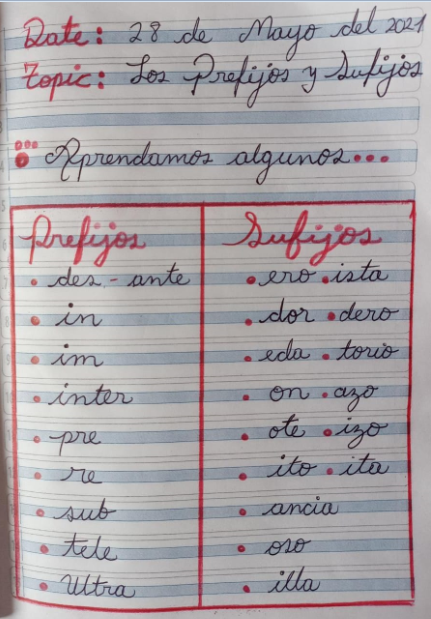 Date: 28 de Mayo del 2021
Topic: Los Prefijos y Sufijos
Aprendamos algunos...
Prefijos
Sufijos
• des - ante
• ero • ista
• in
• dor • dero
• im
• eda • torio
• inter
• on • azo
• pre
• ote • izo
• re
• ito • ita
• sub
• ancia
• tele
• oso
• Ultra
• illa